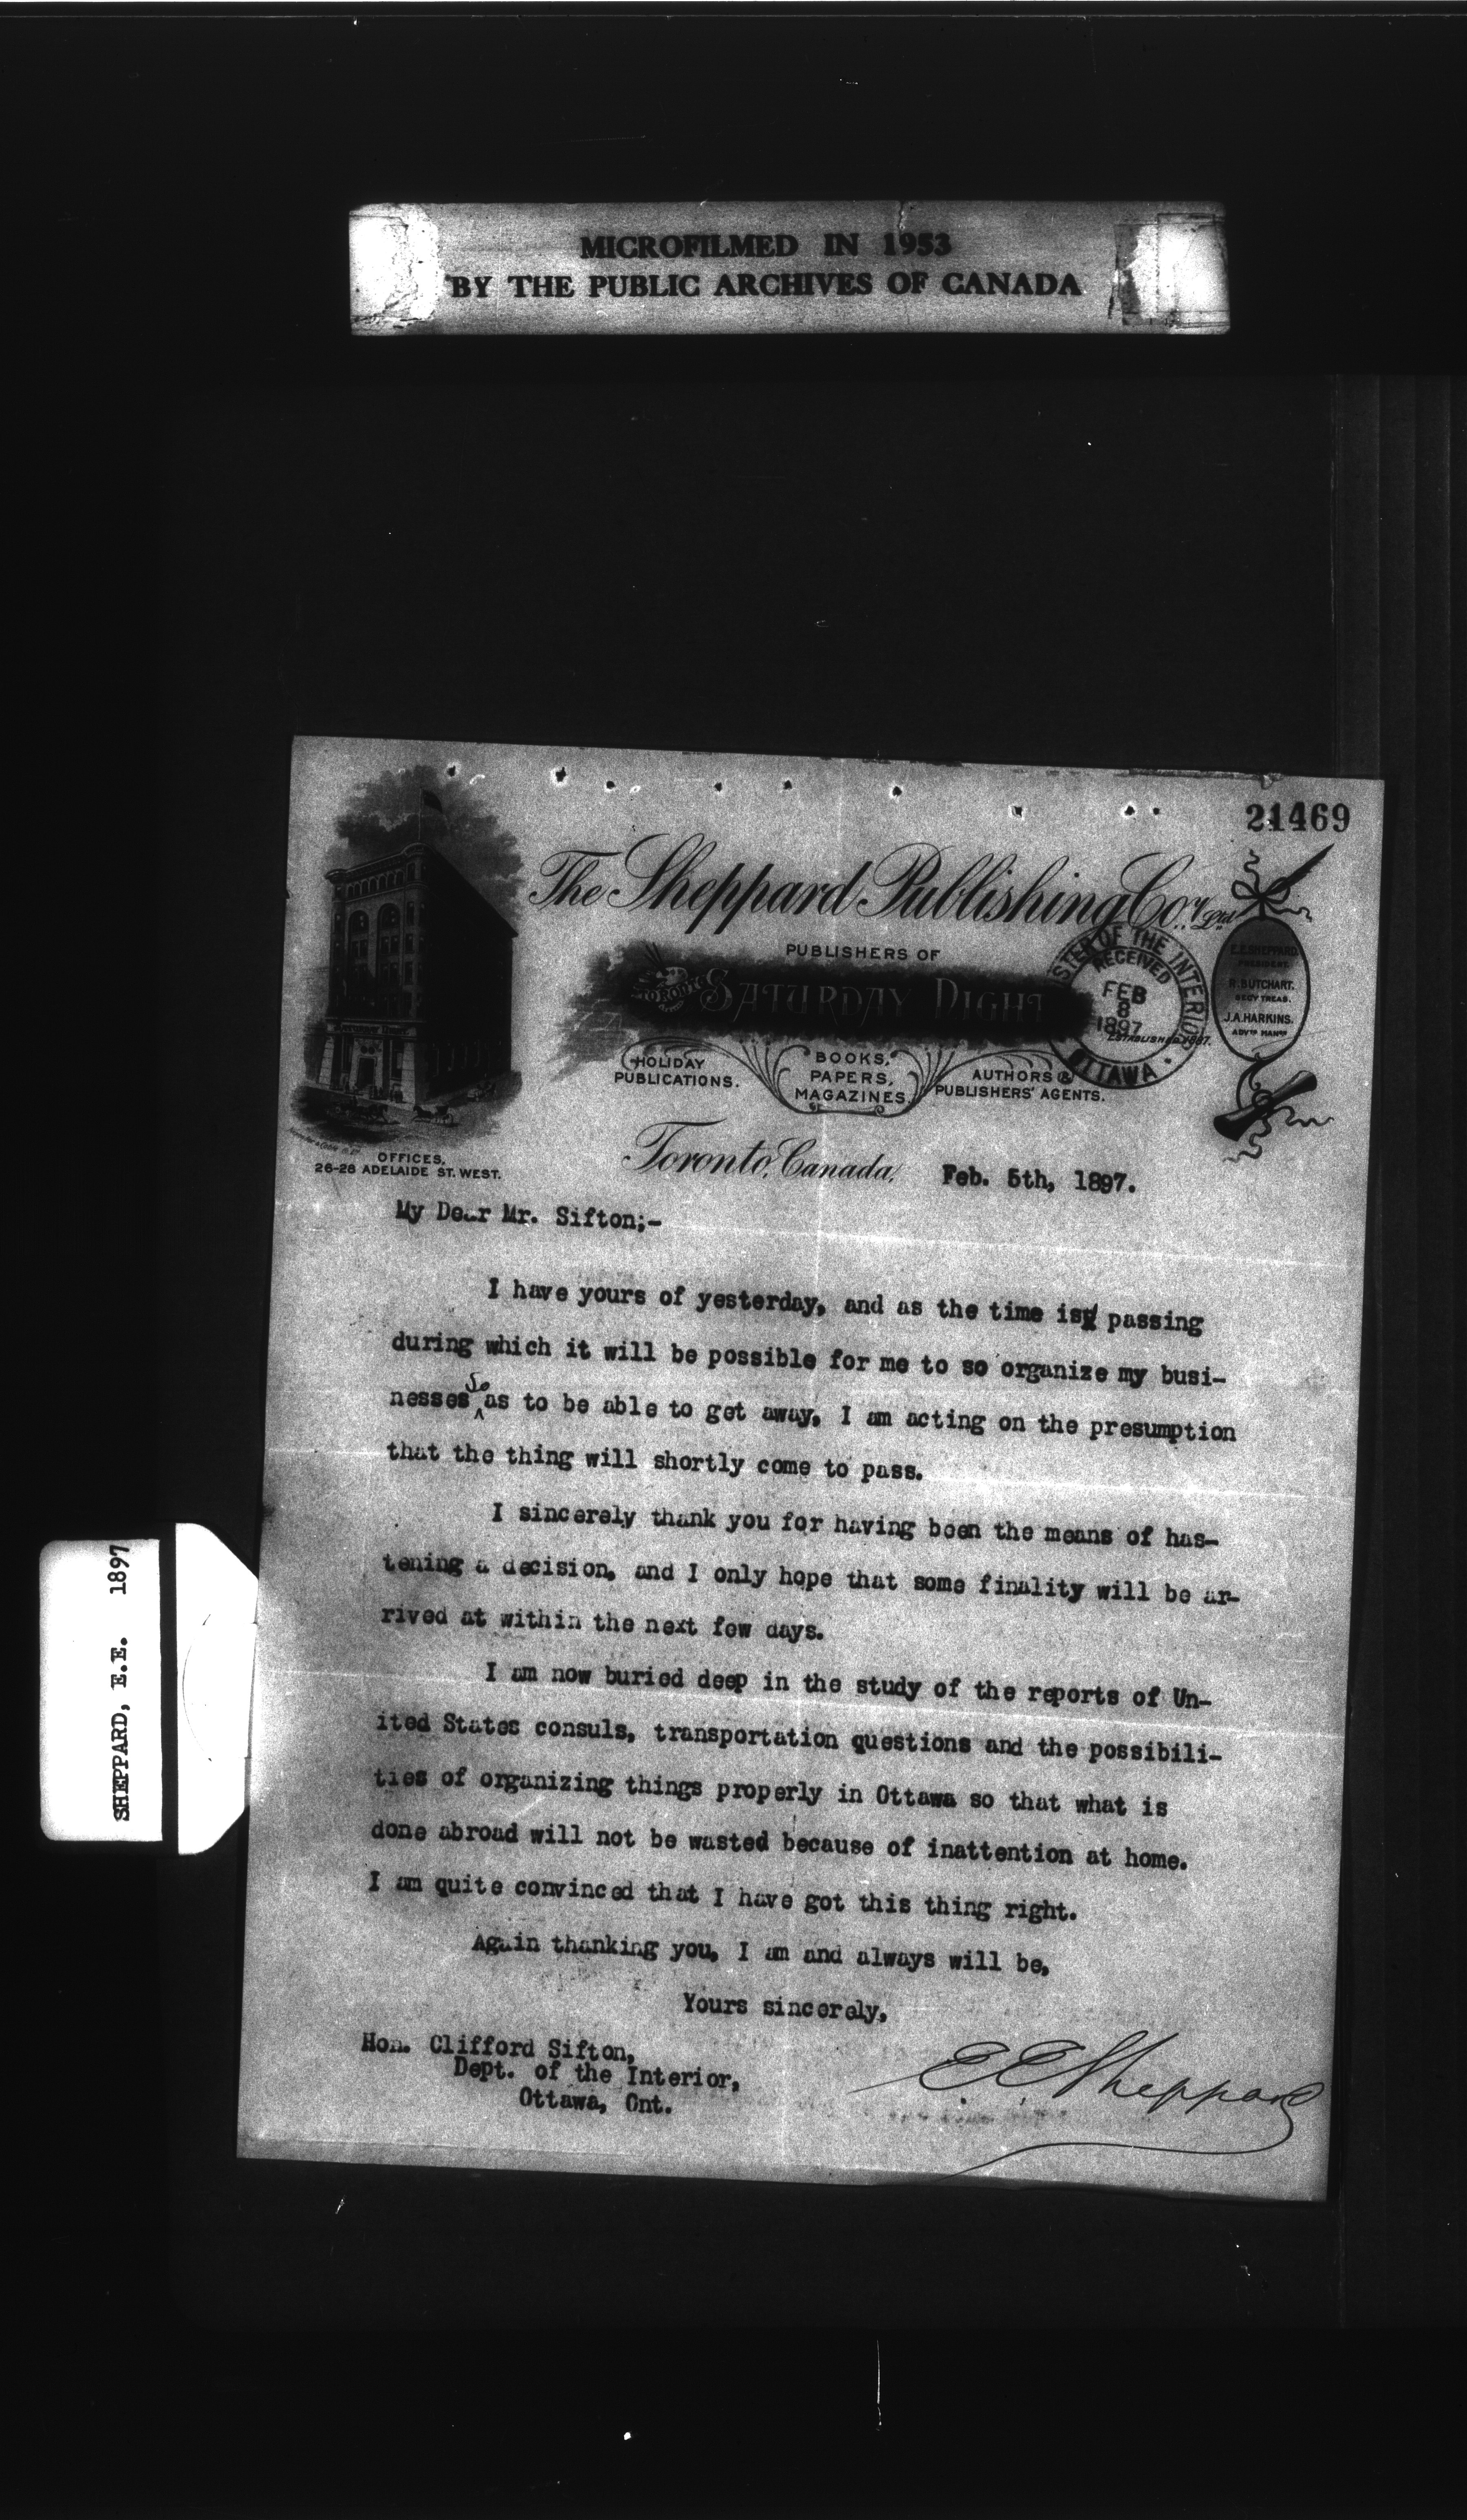 MICROFILMED IN 1953
BY THE PUBLIC ARCHIVES OF CANADA
21469
The Sheppard Publishing Co.y Ltd
PUBLISHERS OF
TORONTO SATURDAY NIGHT
ESTABLISHED 1887.
HOLIDAY
PUBLICATIONS.
BOOKS,
PAPERS,
MAGAZINES.
AUTHORS &
PUBLISHERS' AGENTS.
E.E.SHEPPARD.
PRESIDENT.
R.BUTCHART.
SECY TREAS.
J.A.HARKINS.
ADVTG MANGR
OF THE INTERIOR
RECEIVED
FEB
8
1897
OTTAWA
OFFICES,
26-28 ADELAIDE ST. WEST.
Toronto, Canada, Feb. 5th, 1897.
My Dear Mr. Sifton;-
I have yours of yesterday, and as the time is passing
during which it will be possible for me to so organize my busi-
nesses so as to be able to get away, I am acting on the presumption
that the thing will shortly come to pass.
I sincerely thank you for having been the means of has-
tening a decision, and I only hope that some finality will be ar-
rived at within the next few days.
I am now buried deep in the study of the reports of Un-
ited States consuls, transportation questions and the possibili-
ties of organizing things properly in Ottawa so that what is
done abroad will not be wasted because of inattention at home.
I am quite convinced that I have got this thing right.
Again thanking you, I am and always will be,
Yours sincerely,
Hon. Clifford Sifton,
Dept. of the Interior,
Ottawa, Ont.
E E Sheppard
SHEPPARD, E.E. 1897